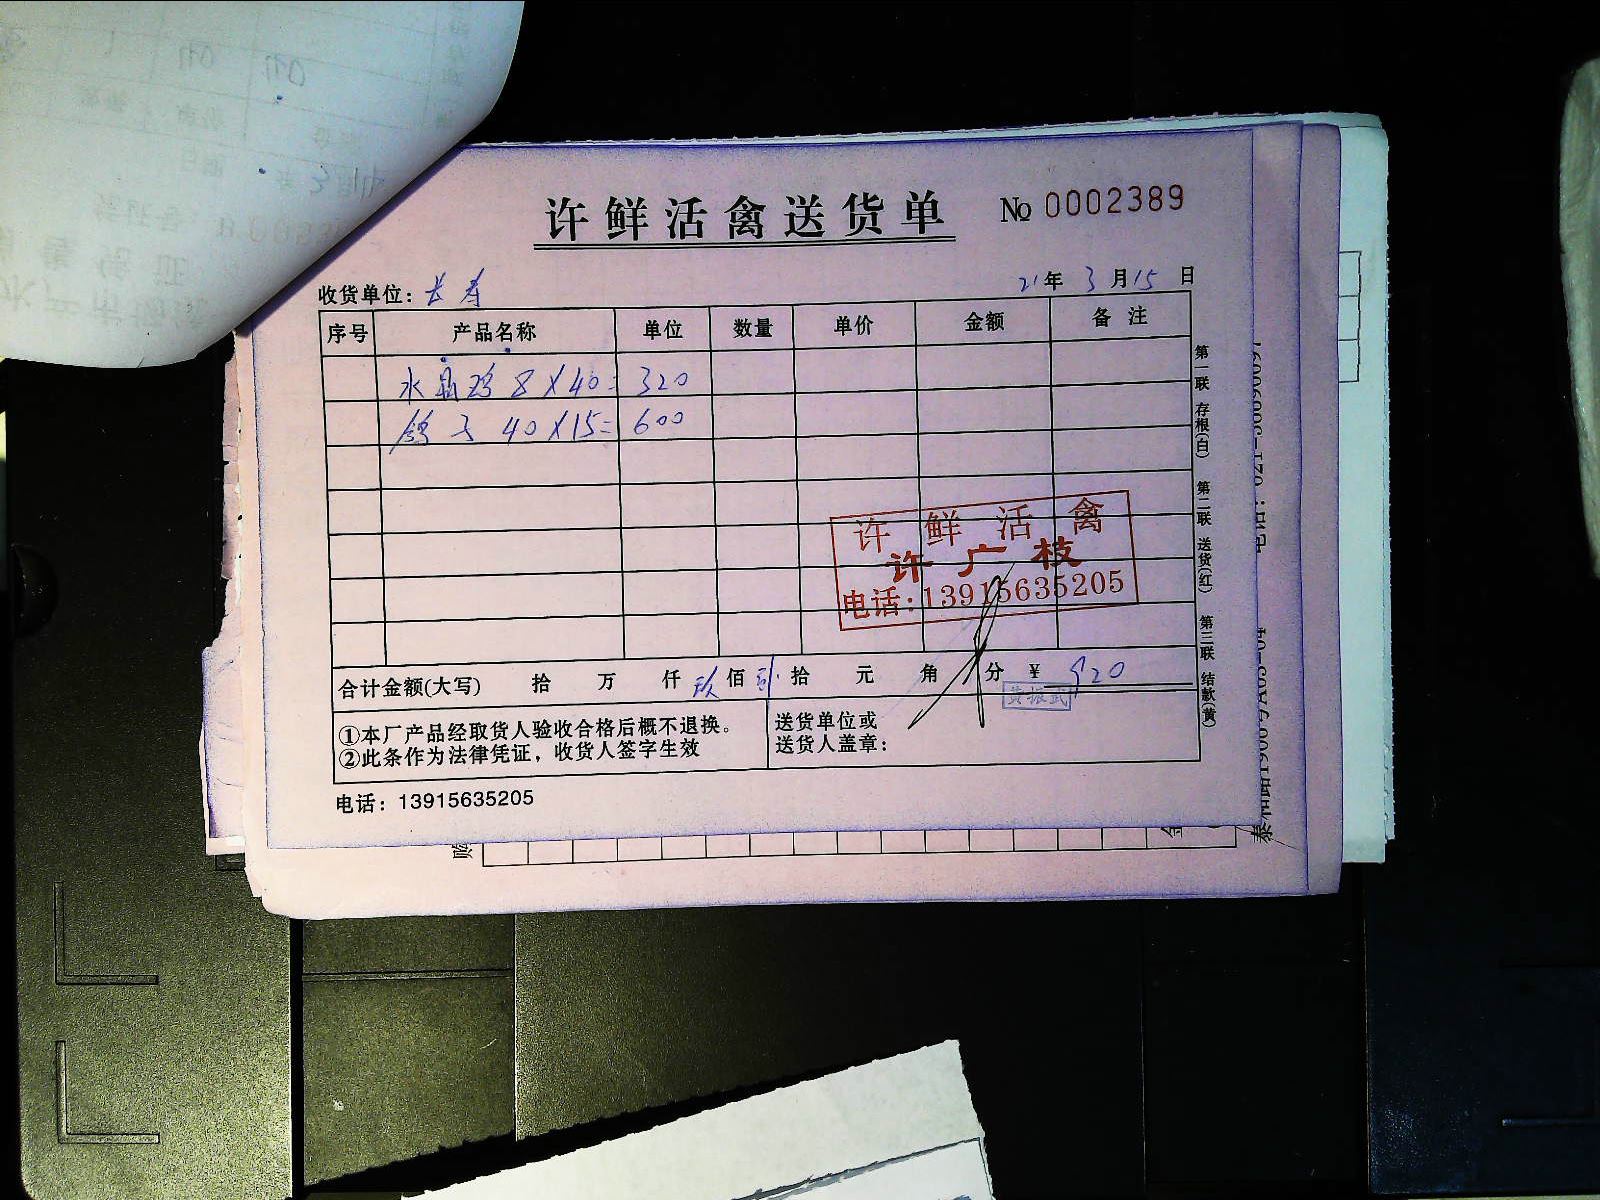 许鲜活禽送货单 № 0002389
收货单位：长寿 21年 3月15日
序号 产品名称 单位 数量 单价 金额 备注
水晶鸡 8×40= 320
鸽子 40×15= 600
许鲜活禽
许广枝
电话:13915635205
合计金额(大写) 拾 万 仟 玖佰 贰拾 元 角 分 ¥ 920
黄振武
①本厂产品经取货人验收合格后概不退换。
②此条作为法律凭证，收货人签字生效
送货单位或
送货人盖章：
电话：13915635205
第一联 存根(白) 第二联 送货(红) 第三联 结款(黄)